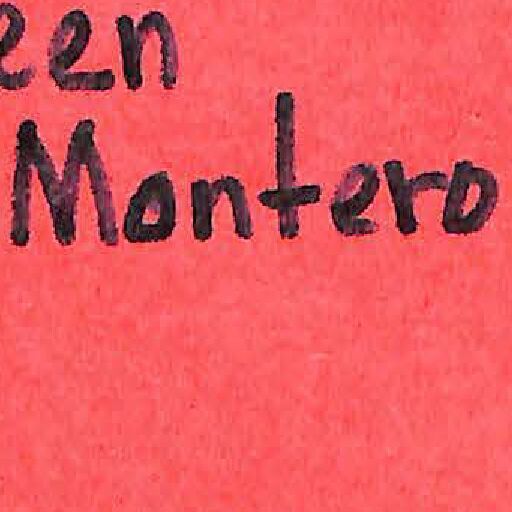 een
Montero